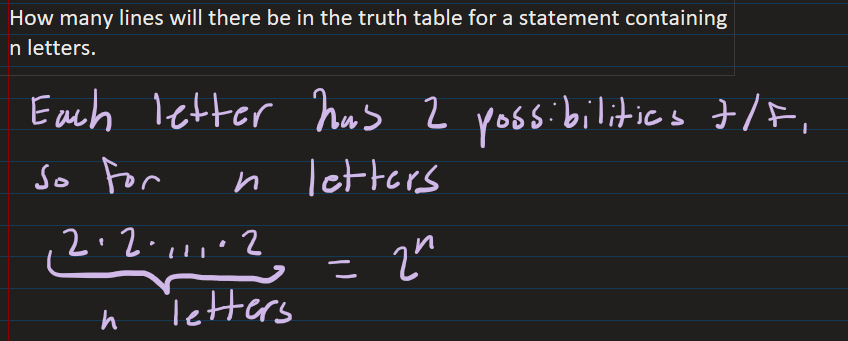 How many lines will there be in the truth table for a statement containing
n letters.
Each letter has 2 possibilities T/F,
so for n letters
2·2·...·2 = 2ⁿ
n letters